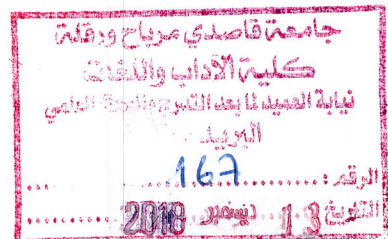 جامعة قاصدي مرباح ورقلة
كلية الآداب واللغات
نيابة العميد لما بعد التدرج والبحث العلمي
البريد
الرقم : 167
التاريخ 13 ديسمبر 2018